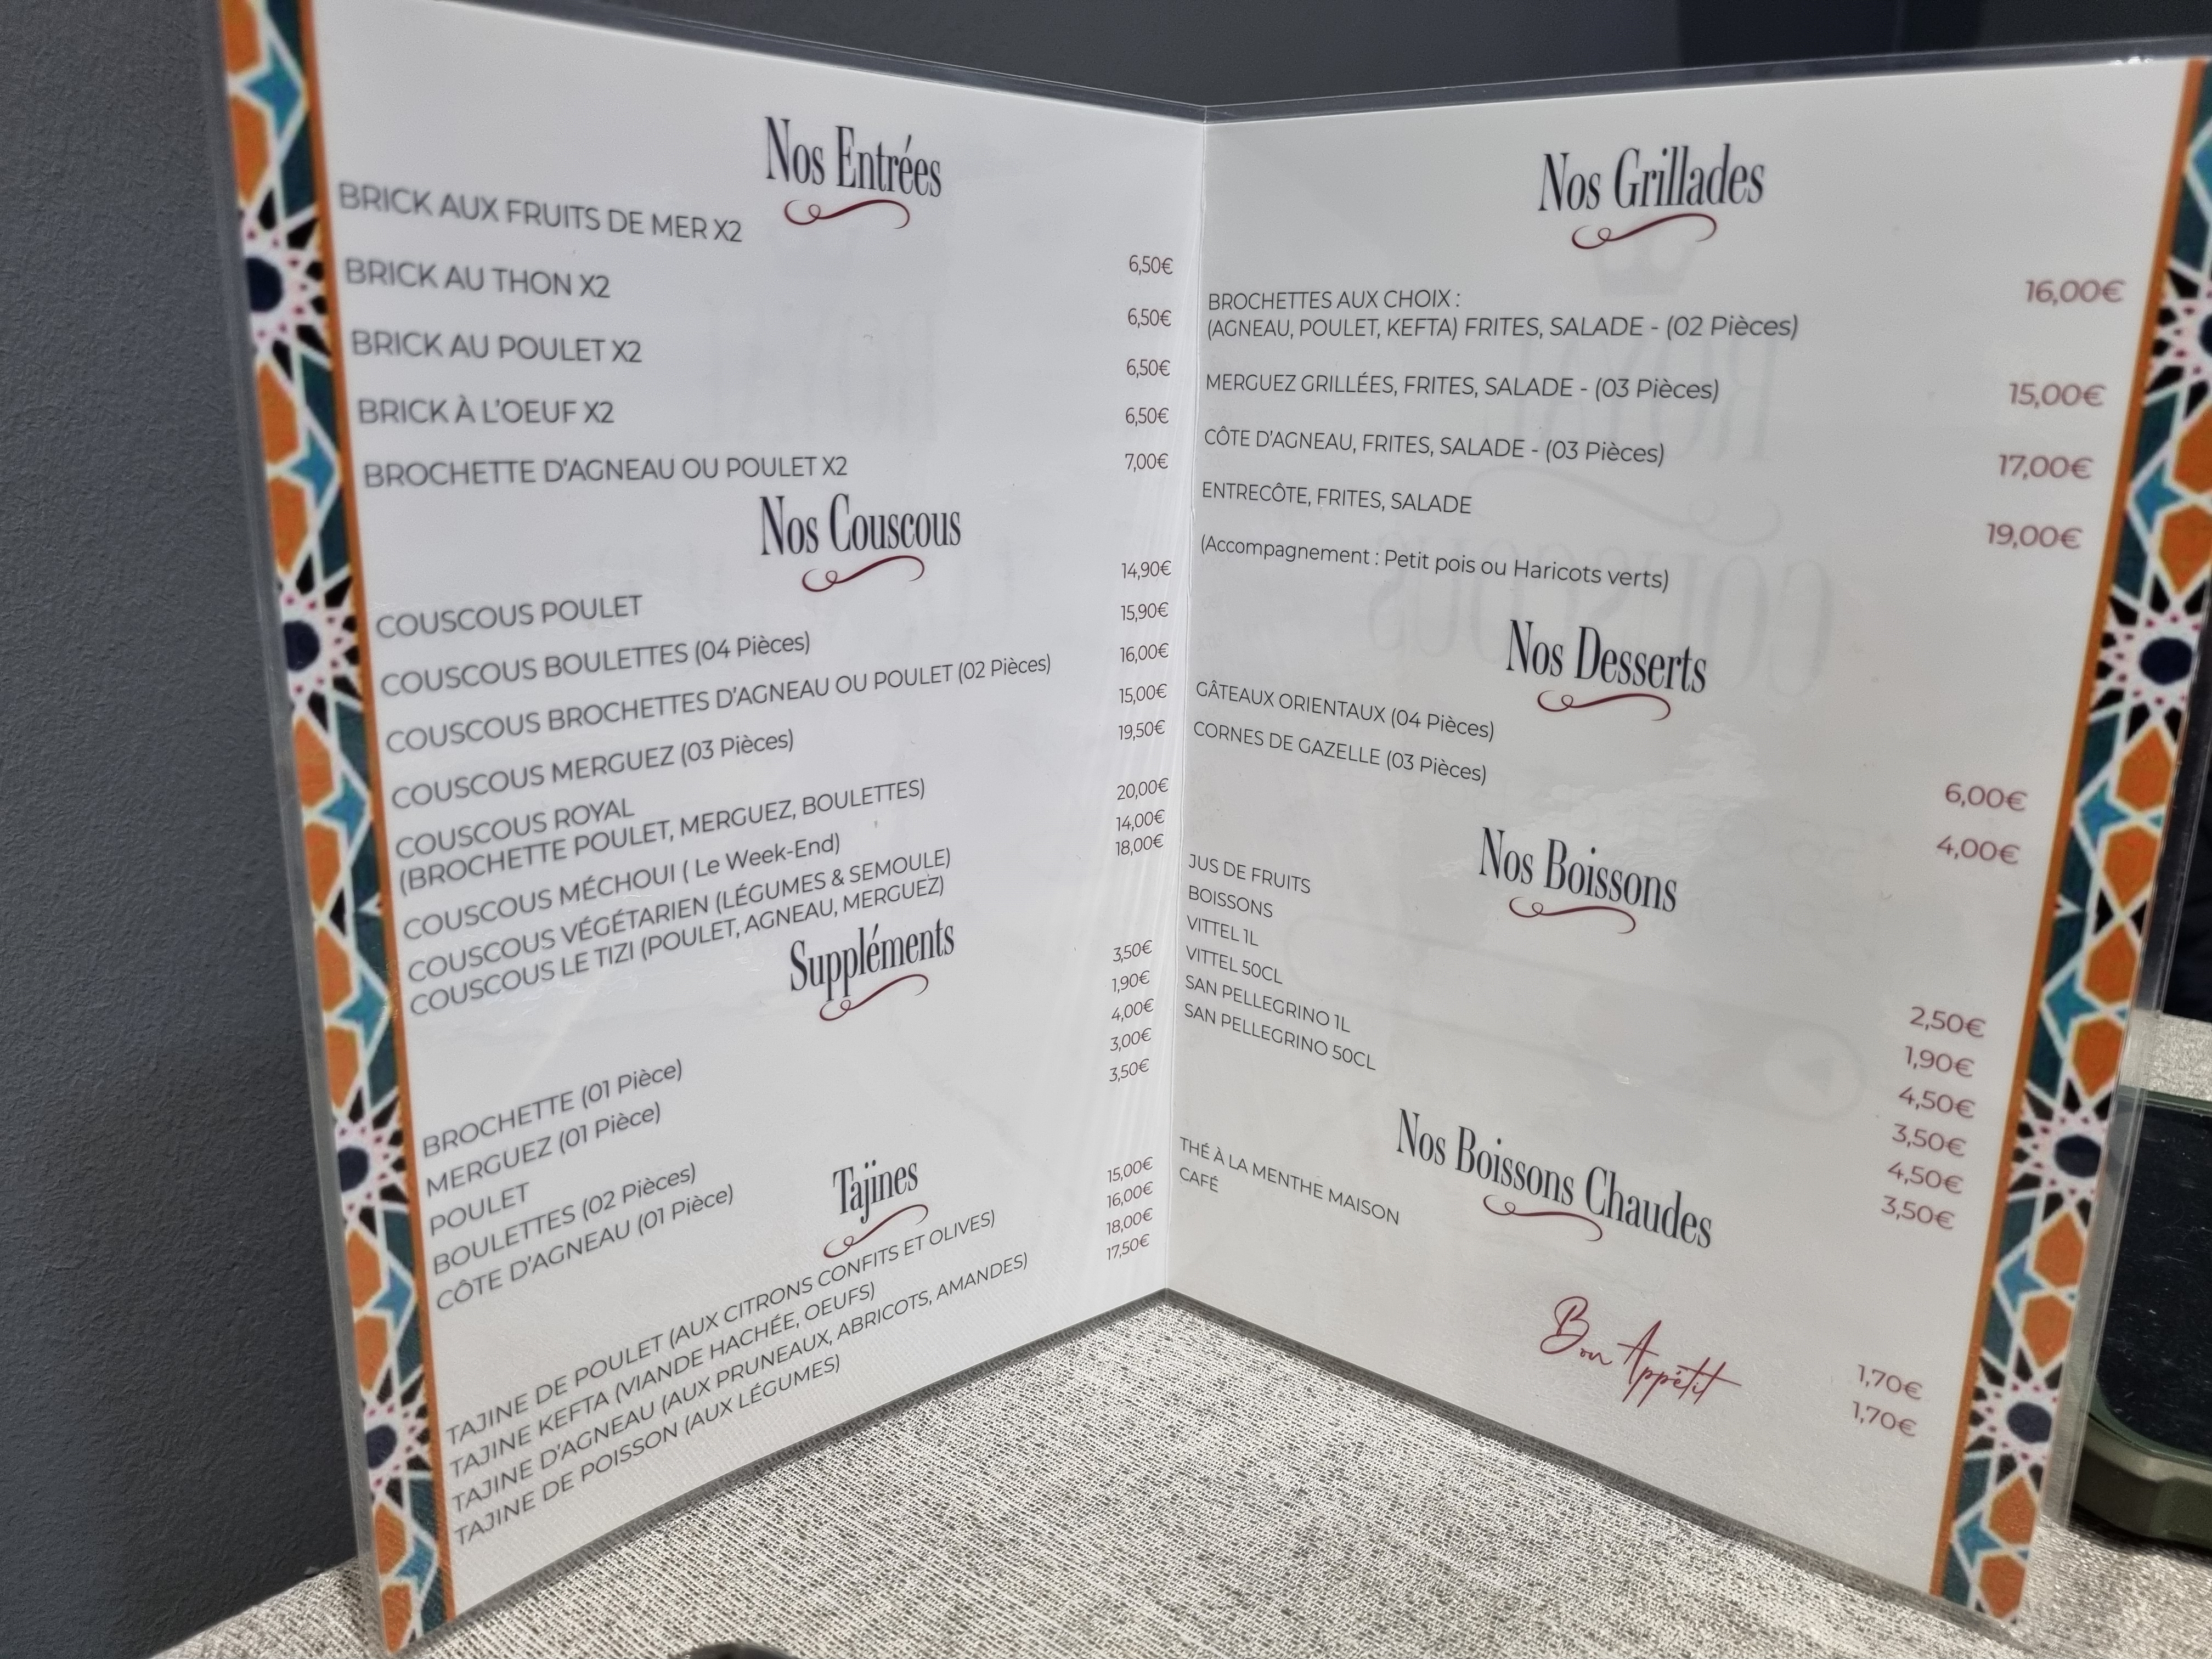 Nos Entrées
BRICK AUX FRUITS DE MER X2 6,50€
BRICK AU THON X2 6,50€
BRICK AU POULET X2 6,50€
BRICK À L'OEUF X2 6,50€
BROCHETTE D'AGNEAU OU POULET X2 7,00€
Nos Couscous
COUSCOUS POULET 14,90€
COUSCOUS BOULETTES (04 Pièces) 15,90€
COUSCOUS BROCHETTES D'AGNEAU OU POULET (02 Pièces) 16,00€
COUSCOUS MERGUEZ (03 Pièces) 15,00€
COUSCOUS ROYAL 19,50€
(BROCHETTE POULET, MERGUEZ, BOULETTES)
COUSCOUS MÉCHOUI ( Le Week-End) 20,00€
COUSCOUS VÉGÉTARIEN (LÉGUMES & SEMOULE) 14,00€
COUSCOUS LE TIZI (POULET, AGNEAU, MERGUEZ) 18,00€
Suppléments
BROCHETTE (01 Pièce) 3,50€
MERGUEZ (01 Pièce) 1,90€
POULET 4,00€
BOULETTES (02 Pièces) 3,00€
CÔTE D'AGNEAU (01 Pièce) 3,50€
Tajines
TAJINE DE POULET (AUX CITRONS CONFITS ET OLIVES) 15,00€
TAJINE KEFTA (VIANDE HACHÉE, OEUFS) 16,00€
TAJINE D'AGNEAU (AUX PRUNEAUX, ABRICOTS, AMANDES) 18,00€
TAJINE DE POISSON (AUX LÉGUMES) 17,50€
Nos Grillades
BROCHETTES AUX CHOIX : 16,00€
(AGNEAU, POULET, KEFTA) FRITES, SALADE - (02 Pièces)
MERGUEZ GRILLÉES, FRITES, SALADE - (03 Pièces) 15,00€
CÔTE D'AGNEAU, FRITES, SALADE - (03 Pièces) 17,00€
ENTRECÔTE, FRITES, SALADE 19,00€
(Accompagnement : Petit pois ou Haricots verts)
Nos Desserts
GÂTEAUX ORIENTAUX (04 Pièces) 6,00€
CORNES DE GAZELLE (03 Pièces) 4,00€
Nos Boissons
JUS DE FRUITS 2,50€
BOISSONS 1,90€
VITTEL 1L 4,50€
VITTEL 50CL 3,50€
SAN PELLEGRINO 1L 4,50€
SAN PELLEGRINO 50CL 3,50€
Nos Boissons Chaudes
THÉ À LA MENTHE MAISON 1,70€
CAFÉ 1,70€
Bon Appétit